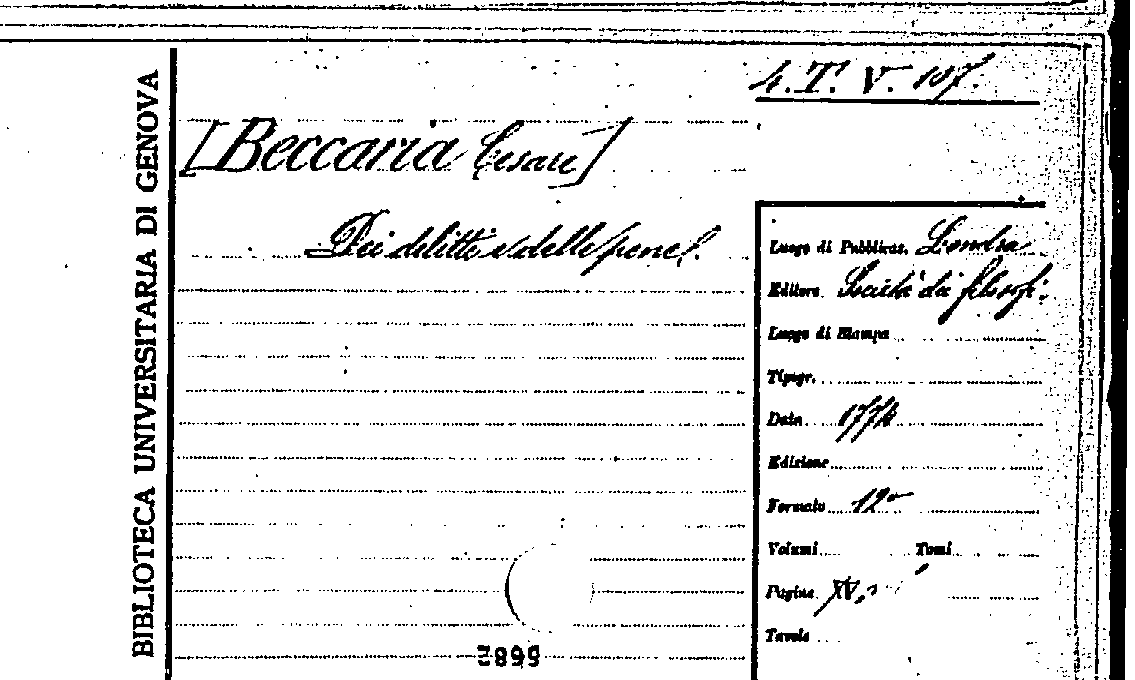 BIBLIOTECA UNIVERSITARIA DI GENOVA
4. T. V. 107.
[Beccaria Cesare]
Dei delitti e delle pene.
Luogo di Pubblicaz. Londra
Editore Società dei filosofi.
Luogo di Stampa
Tipogr.
Data 1774
Edizione
Formato 12°
Volumi Tomi
Pagine XV,
Tavole